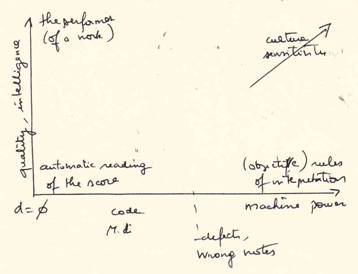 the performer
(of a work)
quality, intelligence
culture
sensitivity
automatic reading
of the score
(objective) rules
of interpretation
d=ϕ
code
machine power
M.di
defects,
wrong notes